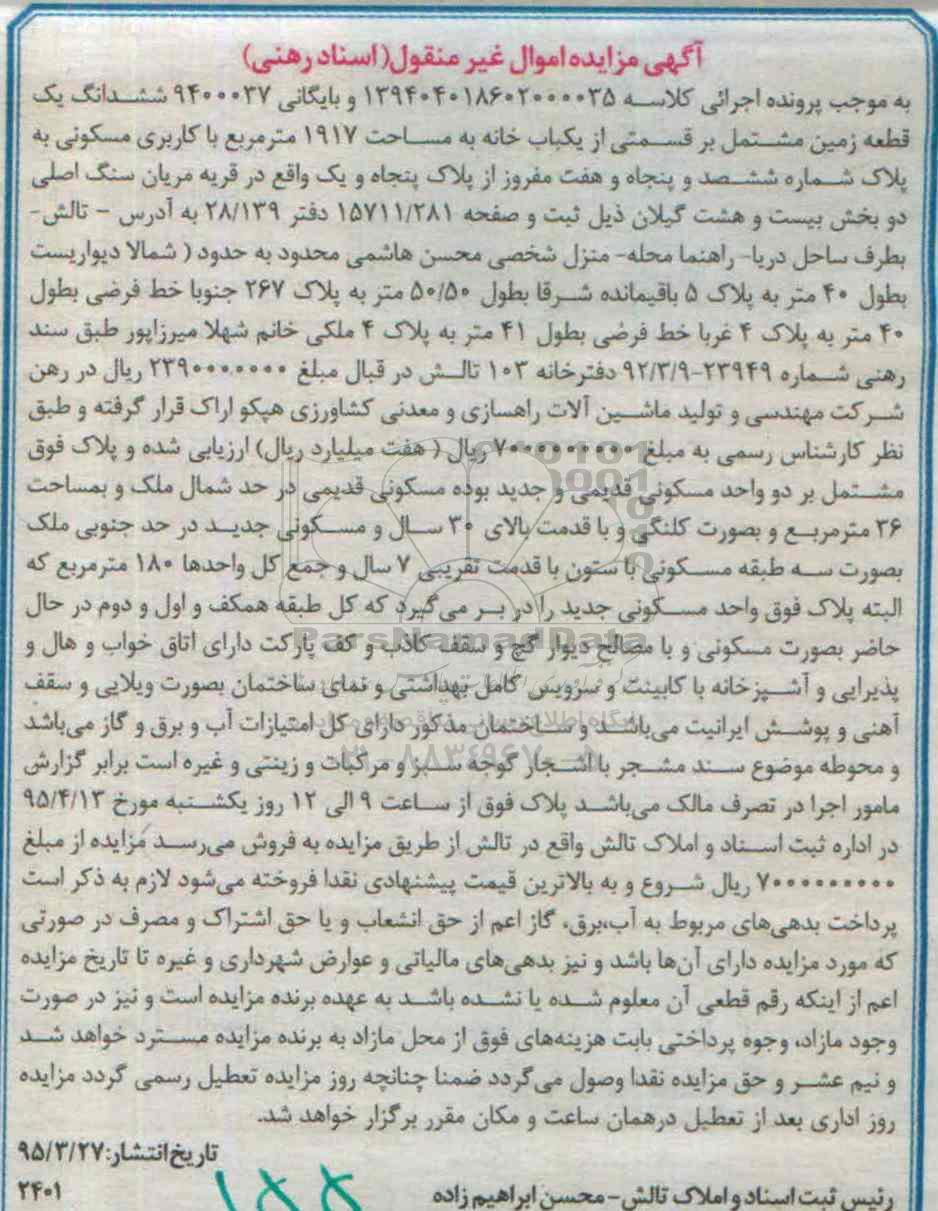 آگهی مزایده اموال غیر منقول(اسناد رهنی)
به موجب پرونده اجرائی کلاسه ۱۳۹۴۰۴۰۱۸۶۰۲۰۰۰۰۳۵ و بایگانی ۹۴۰۰۰۳۷ ششدانگ یک
قطعه زمین مشتمل بر قسمتی از یکباب خانه به مساحت ۱۹۱۷ مترمربع با کاربری مسکونی به
پلاک شماره ششصد و پنجاه و هفت مفروز از پلاک پنجاه و یک واقع در قریه مریان سنگ اصلی
دو بخش بیست و هشت گیلان ذیل ثبت و صفحه ۱۵۷۱۱/۲۸۱ دفتر ۲۸/۱۳۹ به آدرس - تالش-
بطرف ساحل دریا- راهنما محله- منزل شخصی محسن هاشمی محدود به حدود ( شمالا دیواریست
بطول ۴۰ متر به پلاک ۵ باقیمانده شرقا بطول ۵۰/۵۰ متر به پلاک ۲۶۷ جنوبا خط فرضی بطول
۴۰ متر به پلاک ۴ غربا خط فرضی بطول ۴۱ متر به پلاک ۴ ملکی خانم شهلا میرزاپور طبق سند
رهنی شماره ۲۳۹۴۹-۹۲/۳/۹ دفترخانه ۱۰۳ تالش در قبال مبلغ ۲۳۹۰۰۰۰۰۰۰ ریال در رهن
شرکت مهندسی و تولید ماشین آلات راهسازی و معدنی کشاورزی هپکو اراک قرار گرفته و طبق
نظر کارشناس رسمی به مبلغ ۷۰۰۰۰۰۰۰۰۰ ریال ( هفت میلیارد ریال) ارزیابی شده و پلاک فوق
مشتمل بر دو واحد مسکونی قدیمی و جدید بوده مسکونی قدیمی در حد شمال ملک و بمساحت
۳۶ مترمربع و بصورت کلنگی و با قدمت بالای ۳۰ سال و مسکونی جدید در حد جنوبی ملک
بصورت سه طبقه مسکونی با ستون با قدمت تقریبی ۷ سال و جمع کل واحدها ۱۸۰ مترمربع که
البته پلاک فوق واحد مسکونی جدید را در بر می‌گیرد که کل طبقه همکف و اول و دوم در حال
حاضر بصورت مسکونی و با مصالح دیوار گچ و سقف کاذب و کف پارکت دارای اتاق خواب و هال و
پذیرایی و آشپزخانه با کابینت و سرویس کامل بهداشتی و نمای ساختمان بصورت ویلایی و سقف
آهنی و پوشش ایرانیت می‌باشد و ساختمان مذکور دارای کل امتیازات آب و برق و گاز می‌باشد
و محوطه موضوع سند مشجر با اشجار گوجه سبز و مرکبات و زینتی و غیره است برابر گزارش
مامور اجرا در تصرف مالک می‌باشد پلاک فوق از ساعت ۹ الی ۱۲ روز یکشنبه مورخ ۹۵/۴/۱۳
در اداره ثبت اسناد و املاک تالش واقع در تالش از طریق مزایده به فروش می‌رسد مزایده از مبلغ
۷۰۰۰۰۰۰۰۰۰ ریال شروع و به بالاترین قیمت پیشنهادی نقدا فروخته می‌شود لازم به ذکر است
پرداخت بدهی‌های مربوط به آب،برق، گاز اعم از حق انشعاب و یا حق اشتراک و مصرف در صورتی
که مورد مزایده دارای آن‌ها باشد و نیز بدهی‌های مالیاتی و عوارض شهرداری و غیره تا تاریخ مزایده
اعم از اینکه رقم قطعی آن معلوم شده یا نشده باشد به عهده برنده مزایده است و نیز در صورت
وجود مازاد، وجوه پرداختی بابت هزینه‌های فوق از محل مازاد به برنده مزایده مسترد خواهد شد
و نیم عشر و حق مزایده نقدا وصول می‌گردد ضمنا چنانچه روز مزایده تعطیل رسمی گردد مزایده
روز اداری بعد از تعطیل درهمان ساعت و مکان مقرر برگزار خواهد شد.
تاریخ انتشار:۹۵/۳/۲۷
رئیس ثبت اسناد و املاک تالش - محسن ابراهیم زاده
۲۴۰۱
ParsNamadData